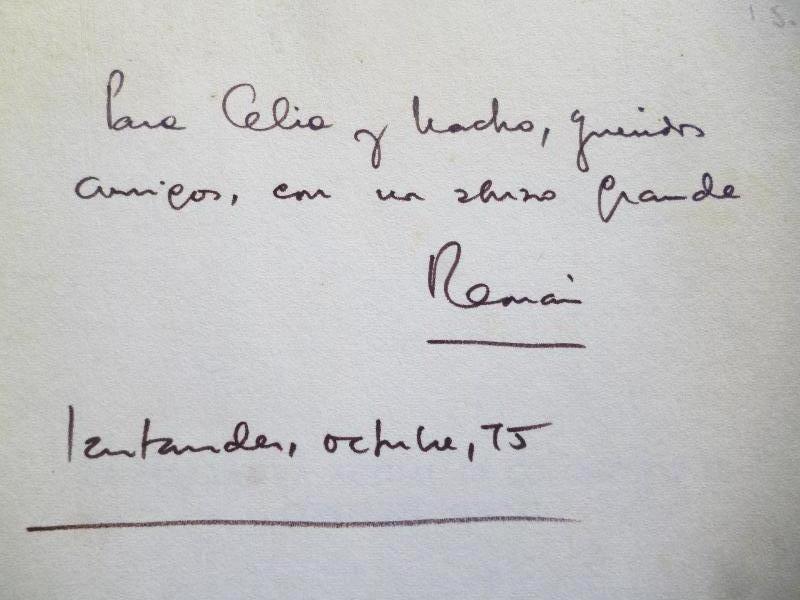 Para Celia y Nacho, queridos
amigos, con un abrazo grande
Román
Santander, octubre, 75